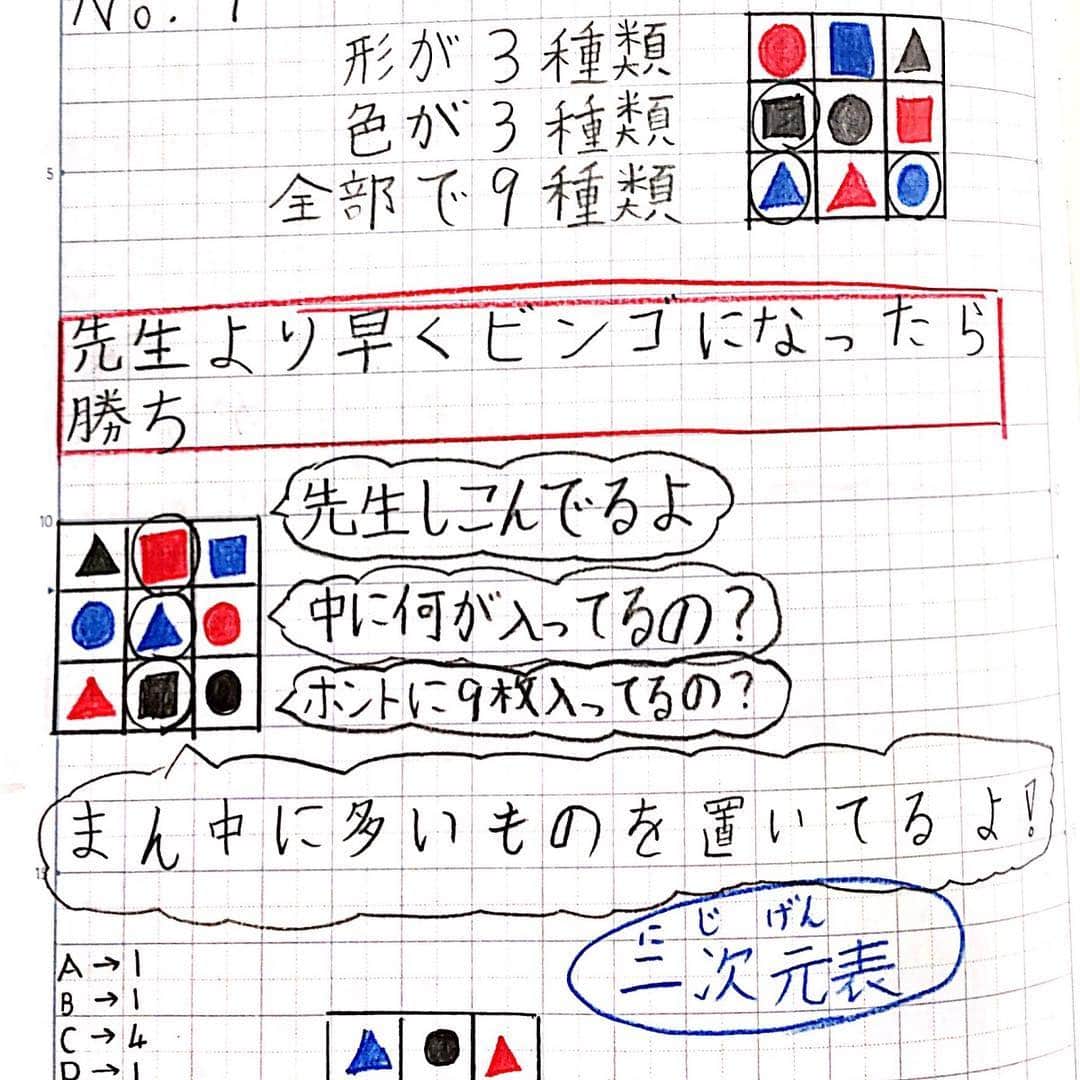 No. 1
形が3種類
色が3種類
全部で9種類
5
先生より早くビンゴになったら
勝ち
10
先生しこんでるよ
中に何が入ってるの？
ホントに9枚入ってるの？
まん中に多いものを置いてるよ！
にじげん
二次元表
A→1
B→1
C→4
D→1